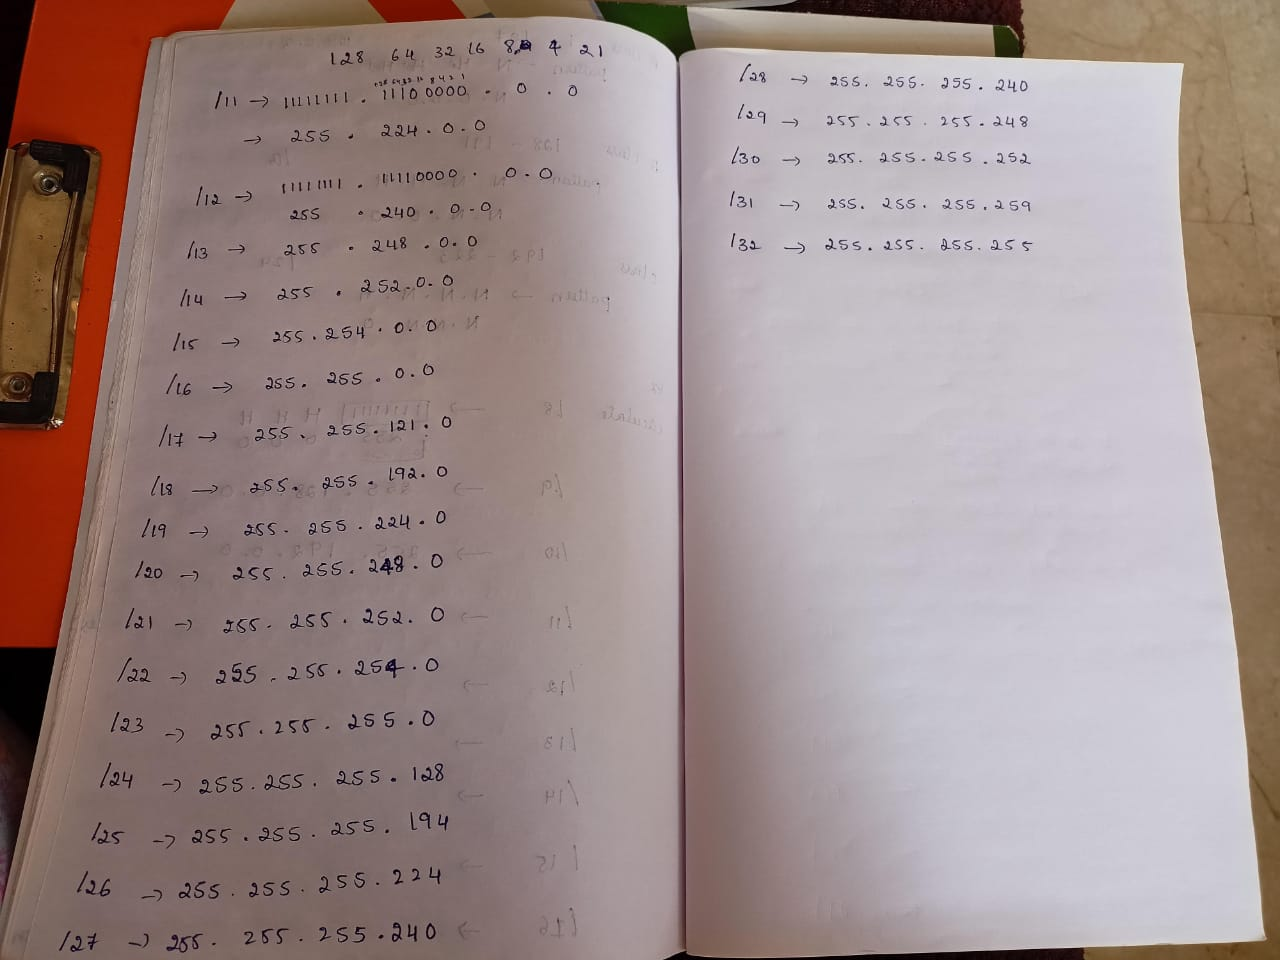 128 64 32 16 8 4 2 1
128 64 32 16 8 4 2 1
/11 → 11111111 . 11100000 . 0 . 0
→ 255 . 224 . 0 . 0
/12 → 11111111 . 11110000 . 0 . 0
255 . 240 . 0 - 0
/13 → 255 . 248 . 0 . 0
/14 → 255 . 252 . 0 . 0
/15 → 255 . 254 . 0 . 0
/16 → 255 . 255 . 0 . 0
/17 → 255 . 255 . 121 . 0
/18 → 255 . 255 . 192 . 0
/19 → 255 . 255 . 224 . 0
/20 → 255 . 255 . 248 . 0
/21 → 255 . 255 . 252 . 0
/22 → 255 . 255 . 254 . 0
/23 → 255 . 255 . 255 . 0
/24 → 255 . 255 . 255 . 128
/25 → 255 . 255 . 255 . 194
/26 → 255 . 255 . 255 . 224
/27 → 255 . 255 . 255 . 240
/28 → 255 . 255 . 255 . 240
/29 → 255 . 255 . 255 . 248
/30 → 255 . 255 . 255 . 252
/31 → 255 . 255 . 255 . 259
/32 → 255 . 255 . 255 . 255